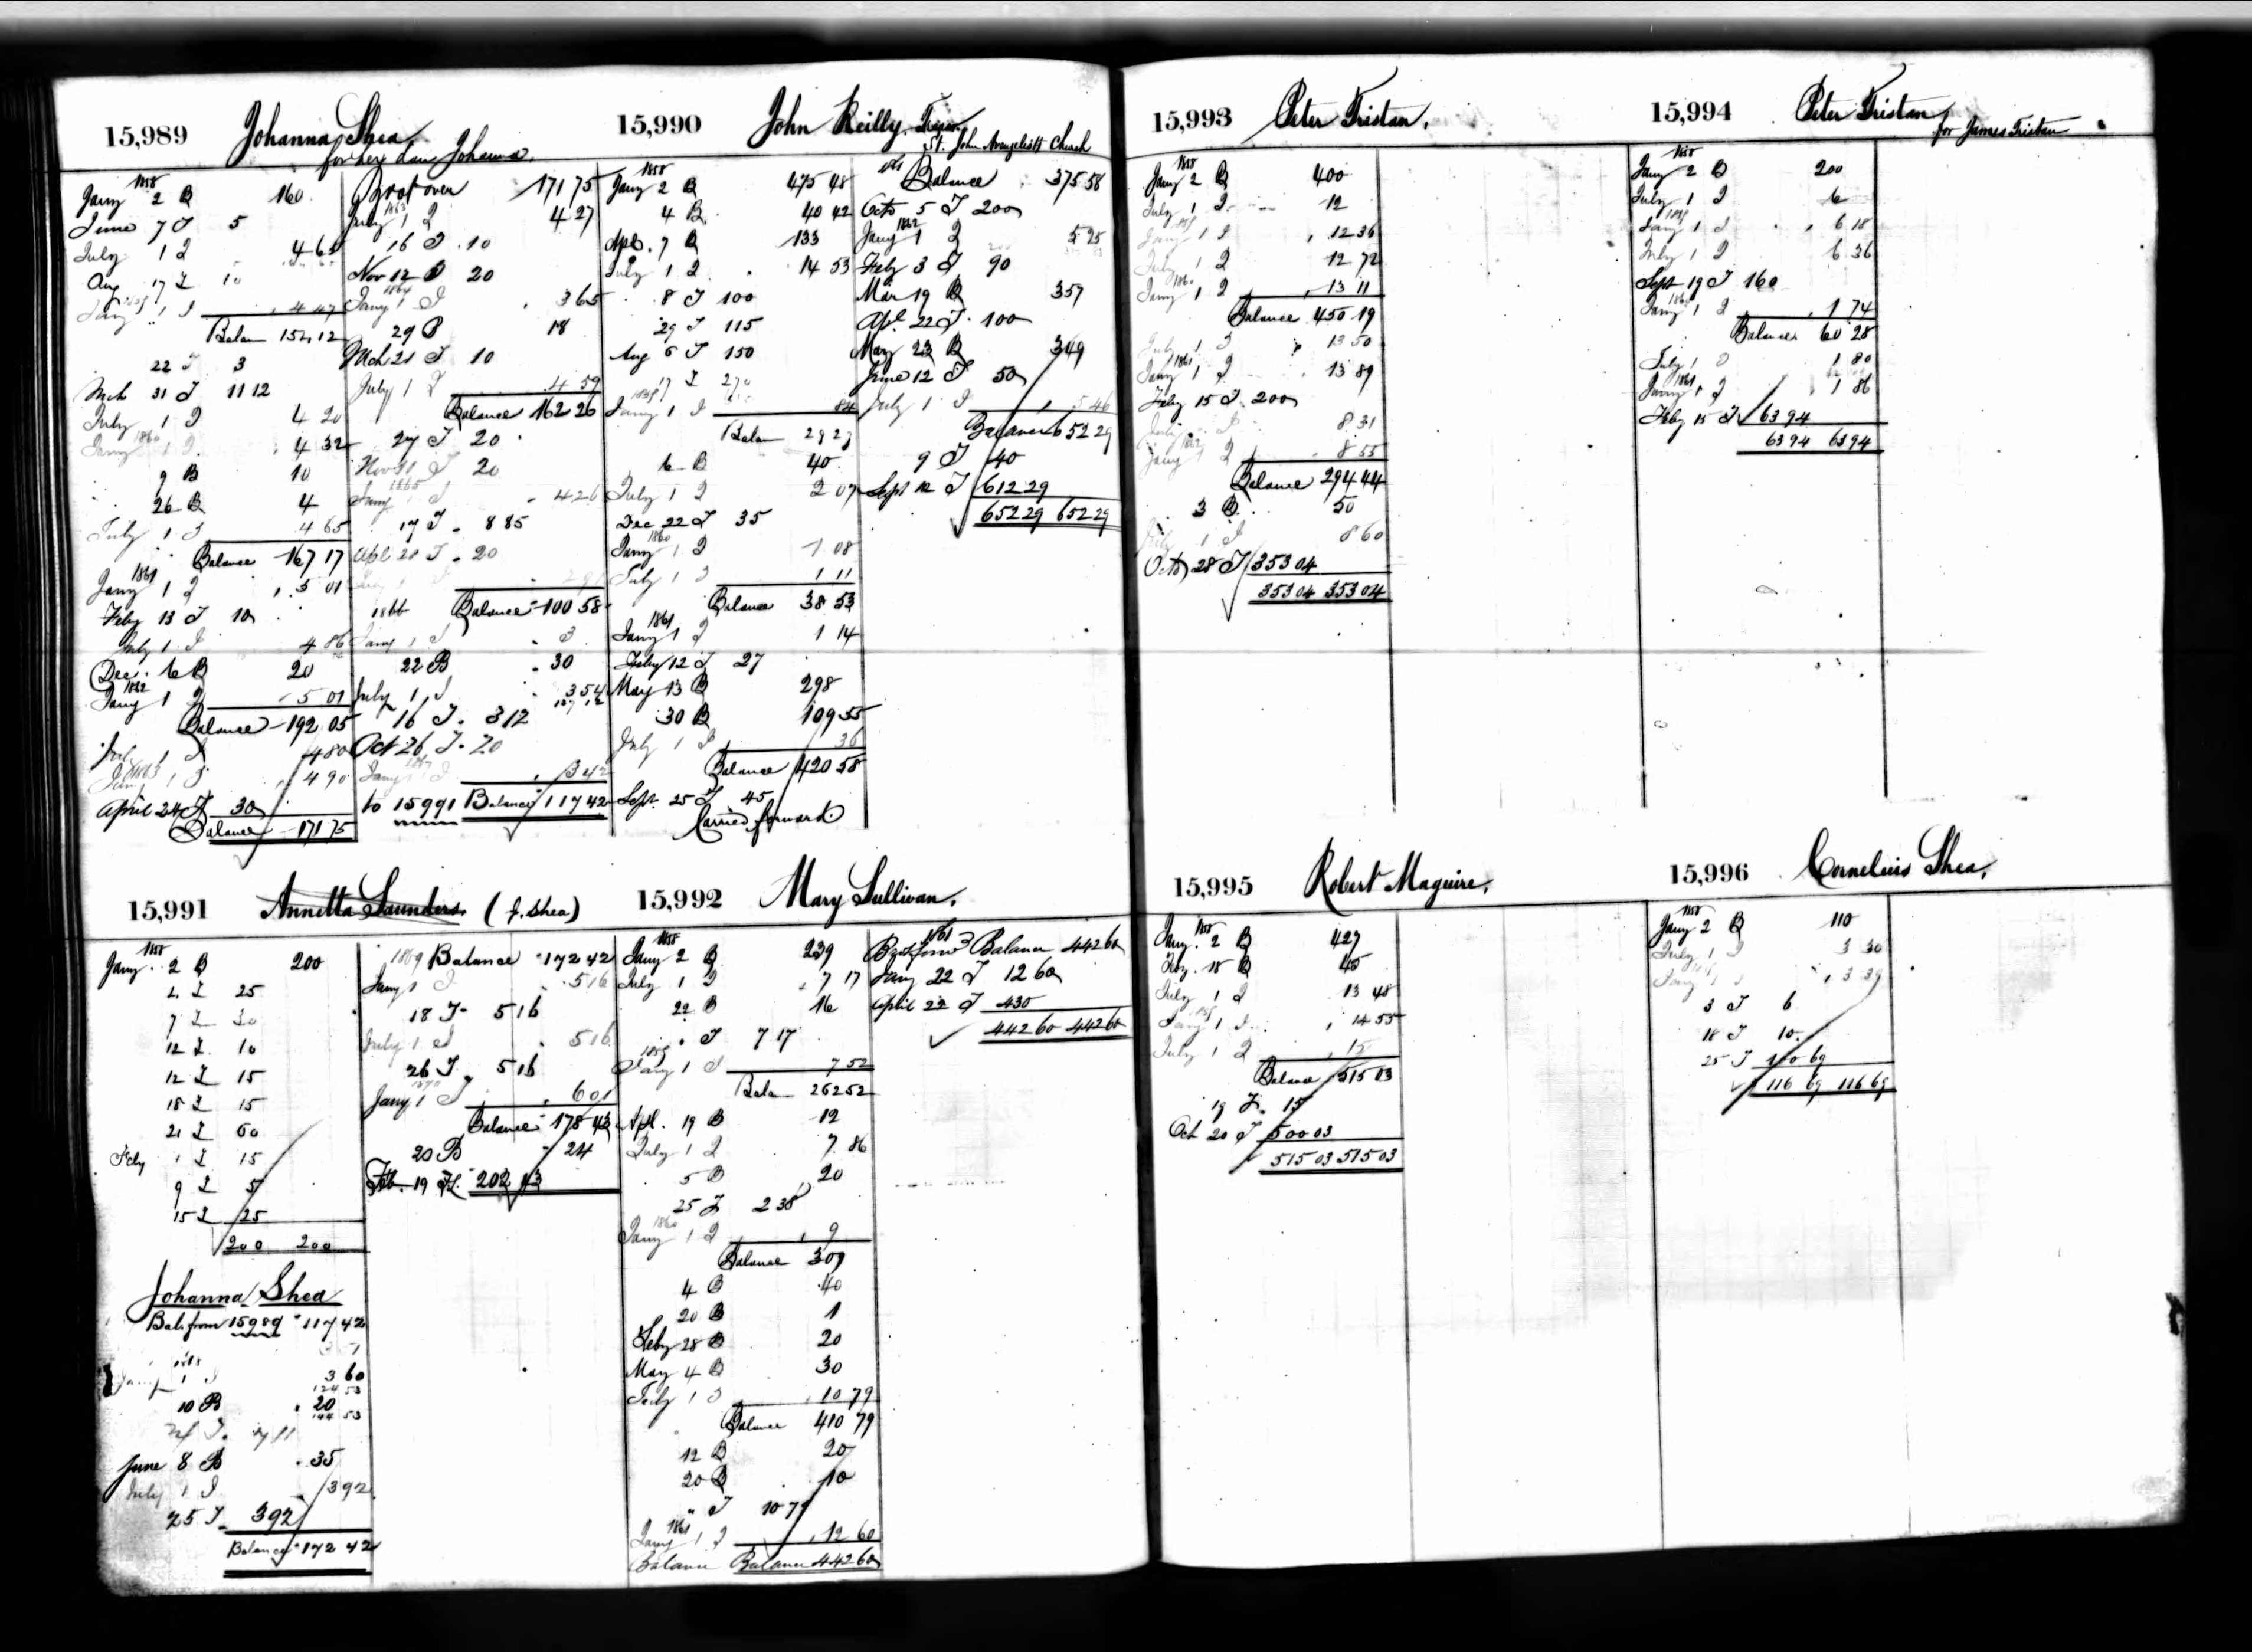 15,989 Johanna Shea
for her dau Johanna
1858
Jany 2 B 160
June 7 I 5
July 1 I 4 65
Aug 17 I 10
Jany 1 I 4 47
Balan 154 12
22 I 3
Mch 31 I 11 12
July 1 I 4 20
1860
Jany 1 I 4 32
9 B 10
26 B 4
July 1 I 4 65
Balance 167 17
1861
Jany 1 I 5 01
Feby 13 I 10
July 1 I 4 86
Dec. 6 B 20
1862
Jany 1 I 5 01
Balance 192 05
July 1 I 4 80
1863
Jany 1 I 4 90
April 24 I 30
Balance 171 75
Brot over 171 75
1863
July 1 I 4 27
16 I 10
Nov 12 I 20
1864
Jany 1 I 3 65
29 B 18
Mch 21 I 10
July 1 I 4 59
Balance 162 26
27 I 20
Nov I 20
1865
Jany 1 I 4 26
17 I 8 85
Apl 20 I 20
Balance 100 58
1866
Jany 1 I 3
22 B 30
July 1 I 3 54
16 I 3 12
Oct 26 I 20
1867
Jany 1 I 3 42
to 15991 Balance 117 42
15,990 John Reilly, Treas.
St. John Avangelists Church
1858
Jany 2 B 475 48
4 B 40 42
Apl. 7 B 133
July 1 I 14 53
8 I 100
29 I 115
Aug 6 I 150
17 I 270
1859
Jany 1 I 84
Balan 29 27
6 B 40
July 1 I 2 07
Dec 22 I 35
1860
Jany 1 I 1 08
July 1 I 1 11
Balance 38 53
1861
Jany 1 I 1 14
Feby 12 I 27
May 13 B 298
30 B 109 55
July 1 I 36
Balance 420 58
Sept. 25 I 45
Carried forward
1861 Balance 375 58
Octo 5 I 200
1862
Jany 1 I 5 25
Feby 3 I 90
Mar 19 B 357
Apl 22 I 100
May 23 B 349
June 12 I 50
July 1 I 5 46
Balance 652 29
9 I 40
Sept 12 I 612 29
652 29 652 29
15,991 Annetta Saunders. (J. Shea)
1858
Jany 2 B 200
4 I 25
7 I 30
12 I 10
12 I 15
18 I 15
21 I 60
Feby 1 I 15
9 I 5
15 I 25
200 200
Johanna Shea
Bal. from 15989 117 42
Jany 1 I 3 60
124 53
10 B 20
144 53
24 I 7 11
June 8 B 35
July 1 I 3 92
25 I 3 92
Balance 172 42
1869 Balance 172 42
Jany 1 I 5 16
18 I 5 16
July 1 I 5 16
26 I 5 16
1870
Jany 1 I 6 01
Balance 178 43
20 B 24
Feb. 19 I 202 43
15,992 Mary Sullivan.
1858
Jany 2 B 239
July 1 I 7 17
22 B 16
" I 7 17
1859
Jany 1 I 7 52
Balan 262 52
Apl. 19 B 12
July 1 I 7 86
5 B 20
25 I 2 38
1860
Jany 1 I 9
Balance 309
4 B 40
20 B 1
Feby 28 B 20
May 4 B 30
July 1 I 10 79
Balance 410 79
12 B 20
20 B 10
" I 10 79
1861
Jany 1 I 12 60
Balance Balance 442 60
1861
Brot forwd Balance 442 60
Jany 22 I 12 60
April 22 I 430
442 60 442 60
15,993 Peter Tristan.
1858
Jany 2 B 400
July 1 I 12
1859
Jany 1 I 12 36
July 1 I 12 72
1860
Jany 1 I 13 11
Balance 450 19
July 1 I 13 50
1861
Jany 1 I 13 89
Feby 15 I 200
July 1 I 8 31
1862
Jany 1 I 8 55
Balance 294 44
3 B 50
July 1 I 8 60
Octo 28 I 353 04
353 04 353 04
15,994 Peter Tristan
for James Tristan
1858
Jany 2 B 200
July 1 I 6
1859
Jany 1 I 6 18
July 1 I 6 36
Sept 19 I 160
1860
Jany 1 I 1 74
Balance 60 28
July 1 I 1 80
1861
Jany 1 I 1 86
Feby 15 I 63 94
63 94 63 94
15,995 Robert Maguire.
1858
Jany. 2 B 427
Feby. 18 B 45
July 1 I 13 48
1859
Jany 1 I 14 55
July 1 I 15
Balance 515 03
19 I 15
Oct 20 I 500 03
515 03 515 03
15,996 Cornelius Shea,
1858
Jany 2 B 110
July 1 I 3 30
1859
Jany 1 I 3 39
3 I 6
18 I 10
25 I 100 69
116 69 116 69